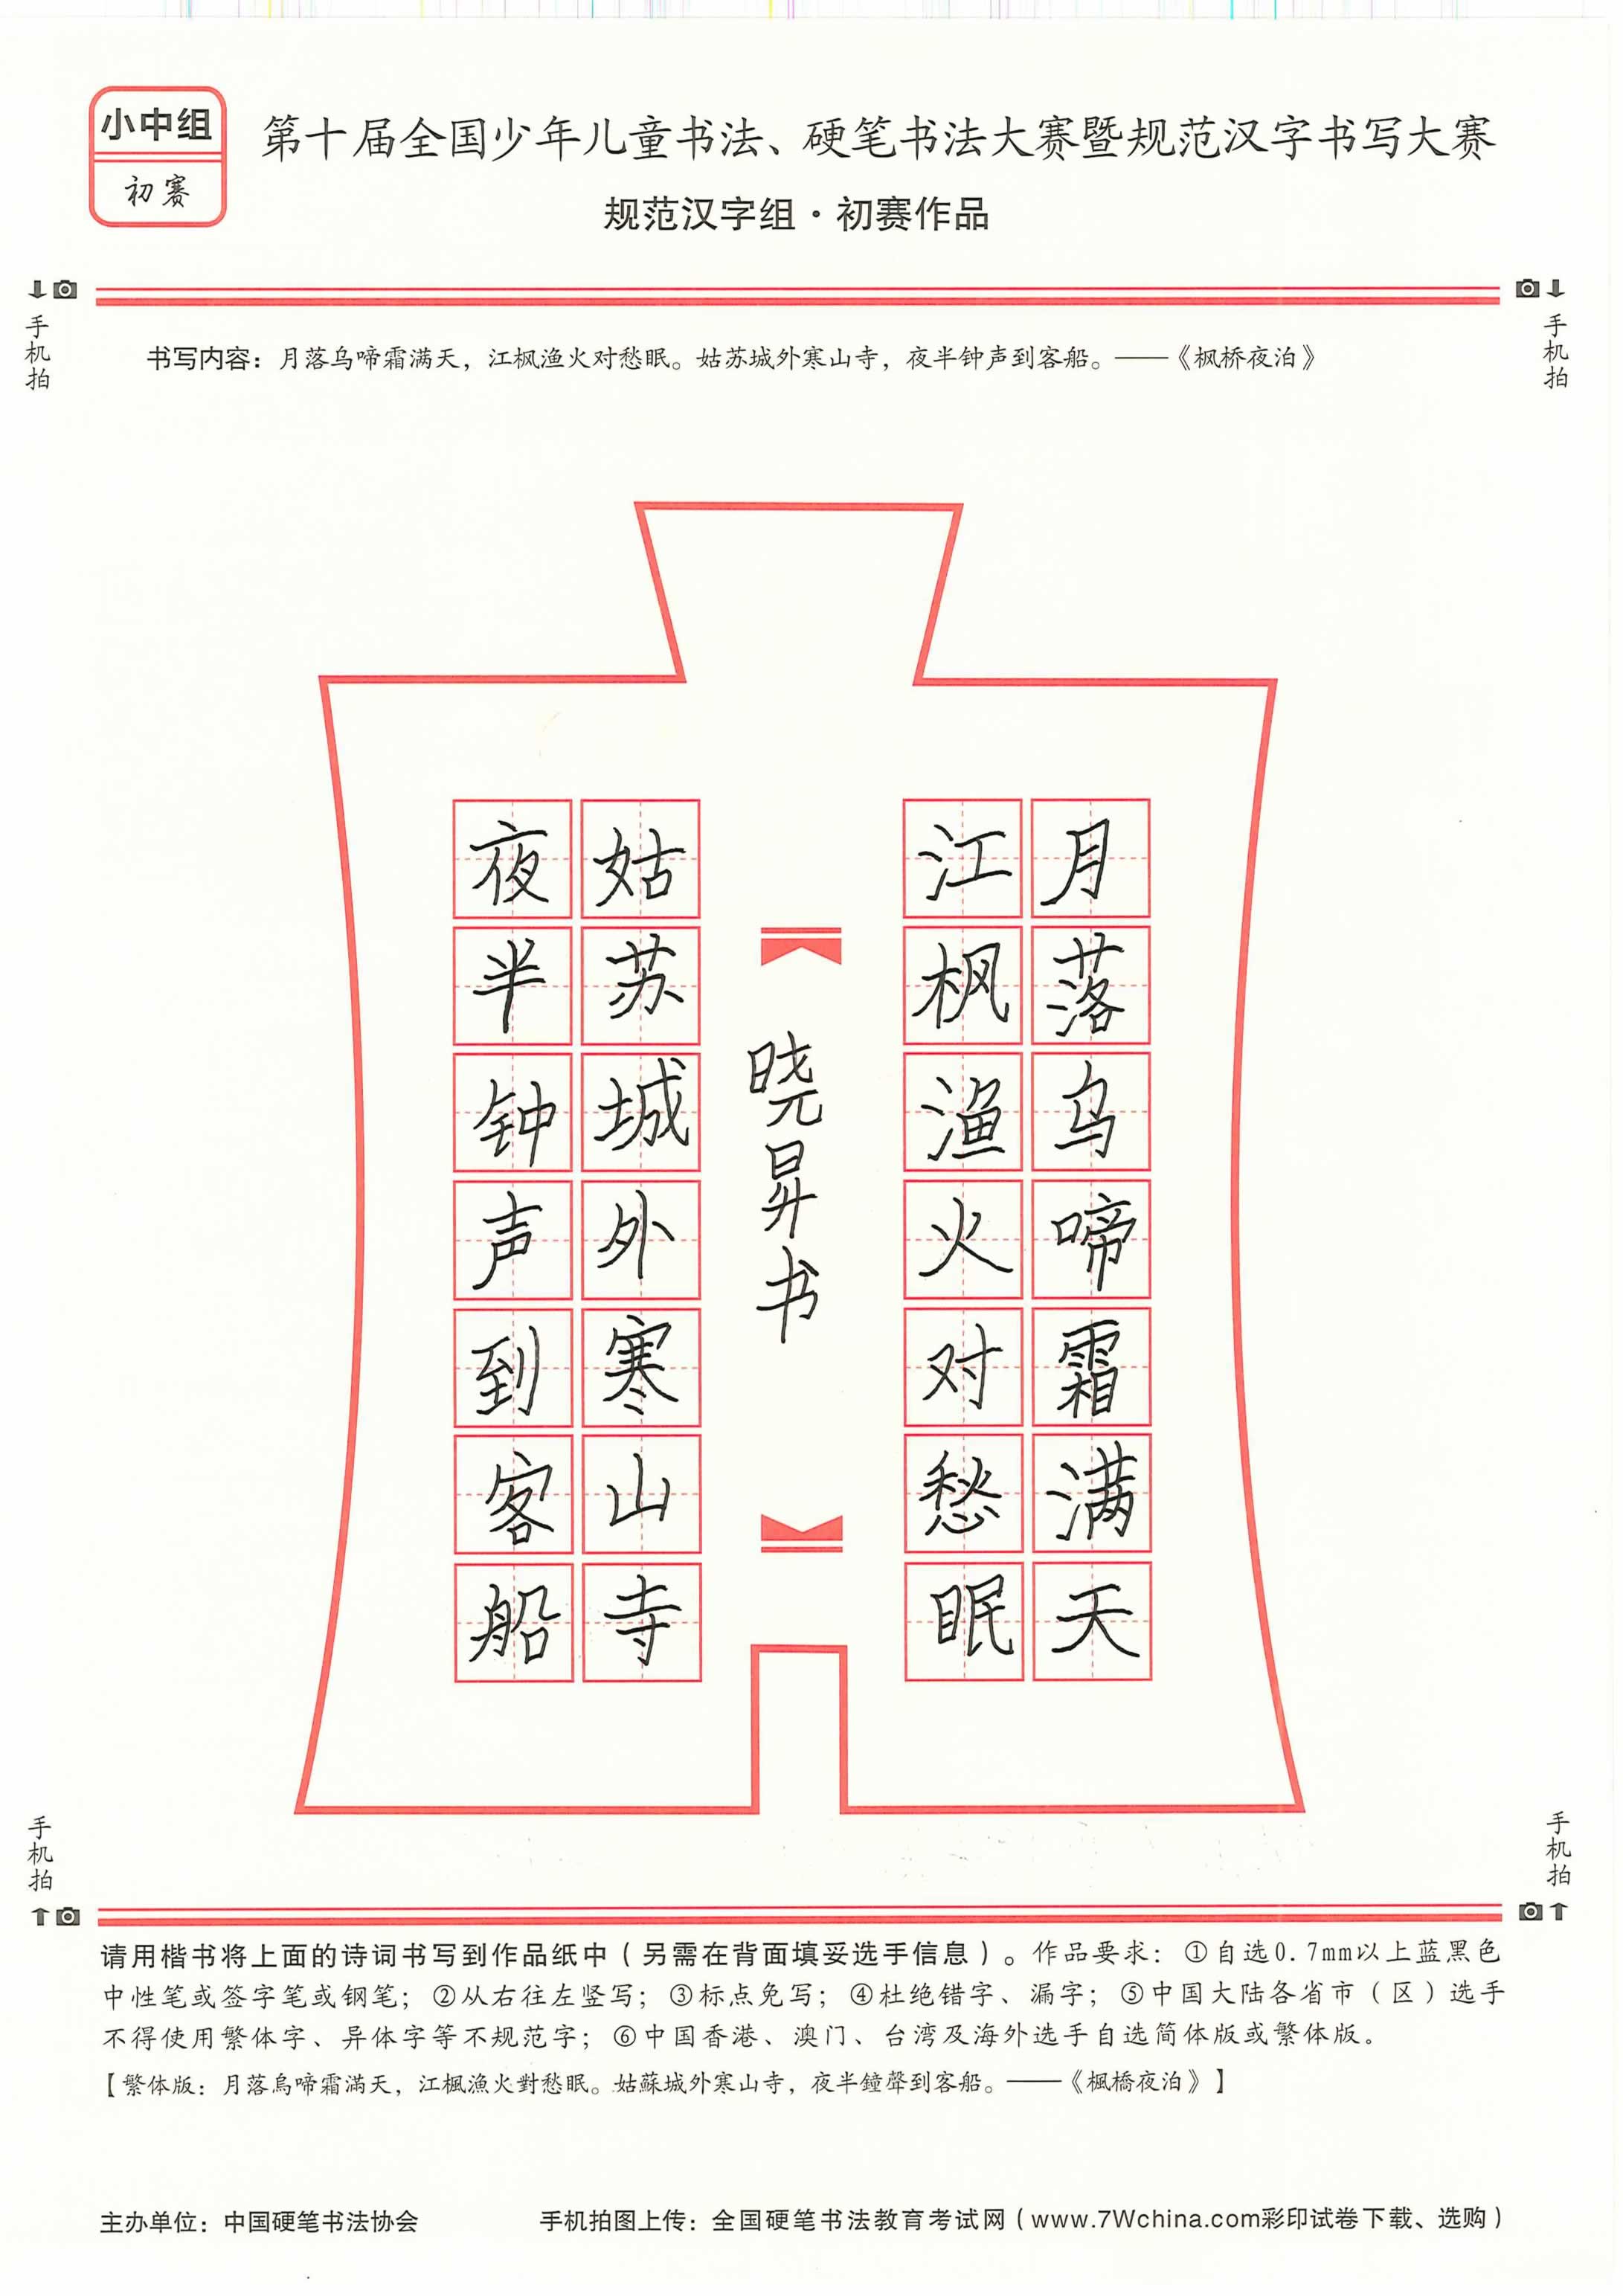 小中组
初赛
第十届全国少年儿童书法、硬笔书法大赛暨规范汉字书写大赛
规范汉字组·初赛作品
手机拍
手机拍
书写内容：月落乌啼霜满天，江枫渔火对愁眠。姑苏城外寒山寺，夜半钟声到客船。——《枫桥夜泊》
月落乌啼霜满天
江枫渔火对愁眠
晓昇书
姑苏城外寒山寺
夜半钟声到客船
手机拍
手机拍
请用楷书将上面的诗词书写到作品纸中（另需在背面填妥选手信息）。作品要求：①自选0.7mm以上蓝黑色
中性笔或签字笔或钢笔；②从右往左竖写；③标点免写；④杜绝错字、漏字；⑤中国大陆各省市（区）选手
不得使用繁体字、异体字等不规范字；⑥中国香港、澳门、台湾及海外选手自选简体版或繁体版。
【繁体版：月落烏啼霜滿天，江楓漁火對愁眠。姑蘇城外寒山寺，夜半鐘聲到客船。——《楓橋夜泊》】
主办单位：中国硬笔书法协会
手机拍图上传：全国硬笔书法教育考试网（www.7Wchina.com彩印试卷下载、选购）